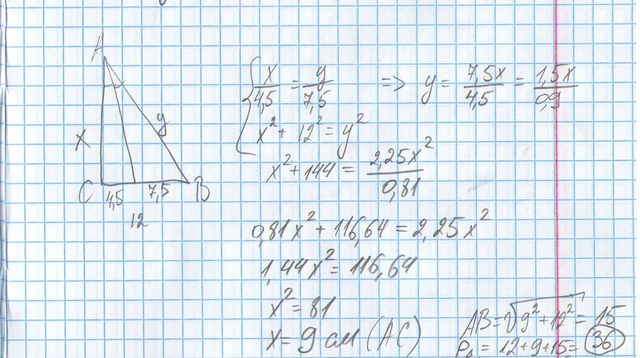 A
x
y
C
4,5
7,5
B
12
x/4,5 = y/7,5 => y = 7,5x/4,5 = 1,5x/0,9
x² + 12² = y²
x² + 144 = 2,25x²/0,81
0,81x² + 116,64 = 2,25x²
1,44x² = 116,64
x² = 81
x = 9 см (AC)
AB = √9² + 12² = 15
P△ = 12 + 9 + 15 = 36